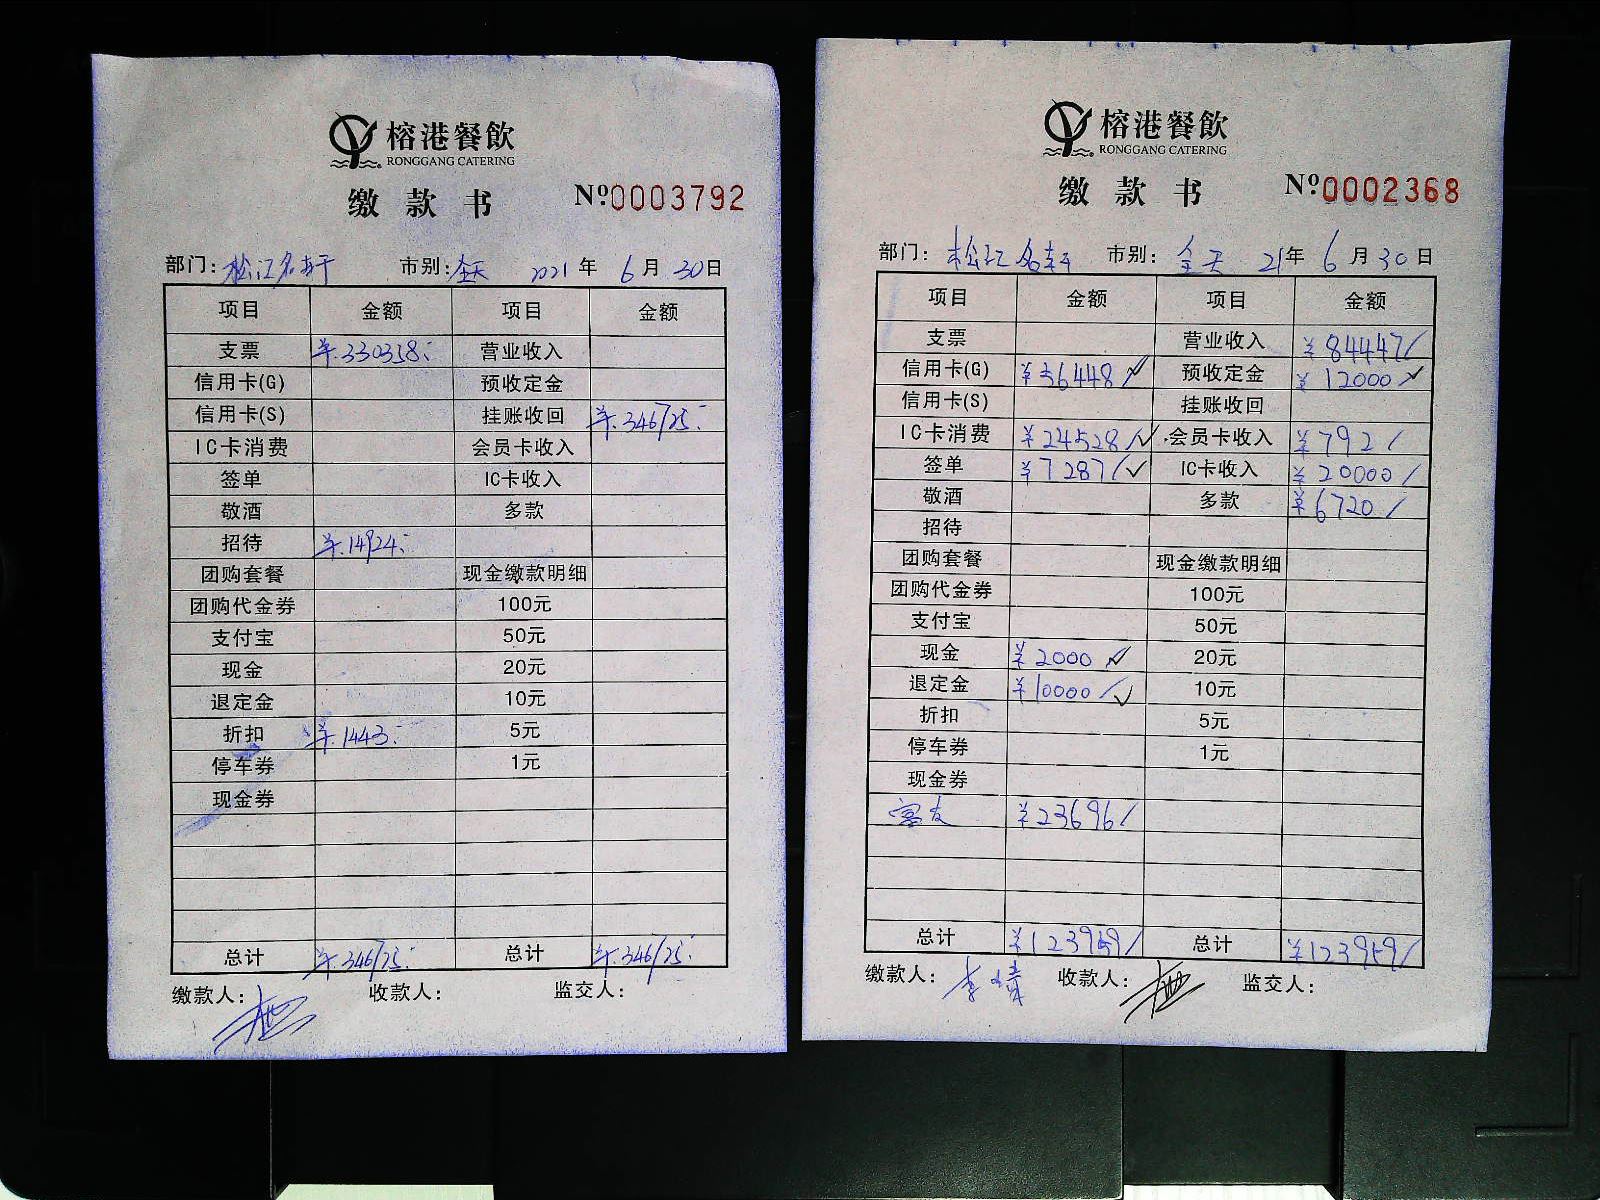 榕港餐飲
RONGGANG CATERING
缴款书 №0003792
部门:松江名轩 市别:全天 2021年6月30日
项目 金额 项目 金额
支票 ¥330358 营业收入
信用卡(G) 预收定金
信用卡(S) 挂账收回 ¥346725
IC卡消费 会员卡收入
签单 IC卡收入
敬酒 多款
招待 ¥14924
团购套餐 现金缴款明细
团购代金券 100元
支付宝 50元
现金 20元
退定金 10元
折扣 ¥1443 5元
停车券 1元
现金券
总计 ¥346725 总计 ¥346725
缴款人: 收款人: 监交人:
榕港餐飲
RONGGANG CATERING
缴款书 №0002368
部门:松江名轩 市别:全天 21年6月30日
项目 金额 项目 金额
支票 营业收入 ¥84447/
信用卡(G) ¥56448/ 预收定金 ¥12000/
信用卡(S) 挂账收回
IC卡消费 ¥24528/ 会员卡收入 ¥792/
签单 ¥7287/ IC卡收入 ¥20000/
敬酒 多款 ¥6720/
招待
团购套餐 现金缴款明细
团购代金券 100元
支付宝 50元
现金 ¥2000/ 20元
退定金 ¥10000/ 10元
折扣 5元
停车券 1元
现金券
¥23696/
总计 ¥123959/ 总计 ¥123959/
缴款人: 收款人: 监交人: